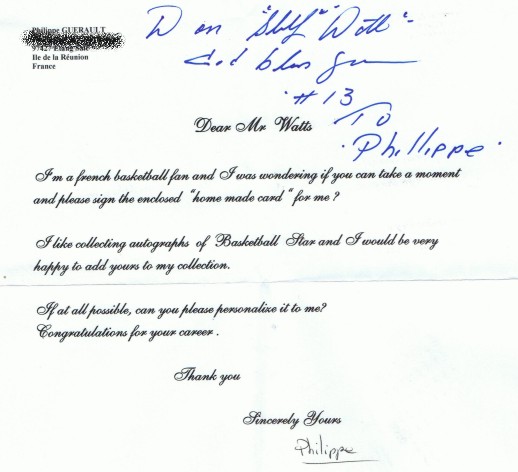 Philippe GUERAULT
97427 Etang Salé
Ile de la Réunion
France
Don "Slick" Watts
God bless
#13
To
Phillippe
Dear Mr Watts
I'm a french basketball fan and I was wondering if you can take a moment
and please sign the enclosed "home made card" for me ?
I like collecting autographs of Basketball Star and I would be very
happy to add yours to my collection.
If at all possible, can you please personalize it to me?
Congratulations for your career .
Thank you
Sincerely Yours
Philippe